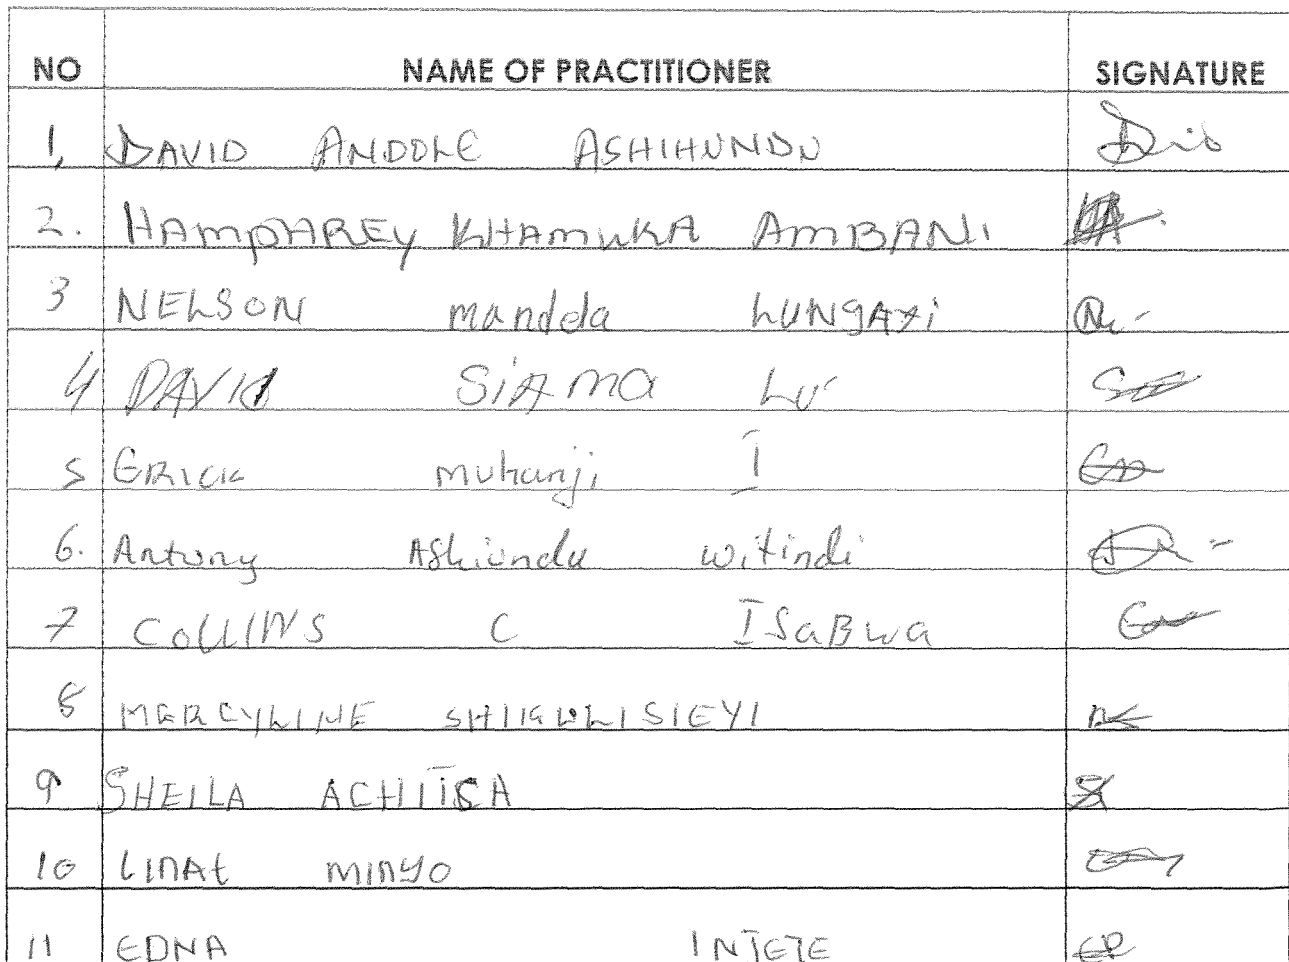 NO NAME OF PRACTITIONER SIGNATURE
1, DAVID ANDOLE ASHIHUNDU
2. HAmpHAREy KHAmuKA AmBANi
3 NELSON mandela LUNGAYi
4 DAVID SiAmA Lu
5 ERICK muhanji I
6. Antony AShiundu witindi
7 COLLINS C ISaBwa
8 MERCYLINE SHIGULI SIEYI
9 SHEILA ACHITSA
10 LINAt MINYO
11 EDNA INJETE